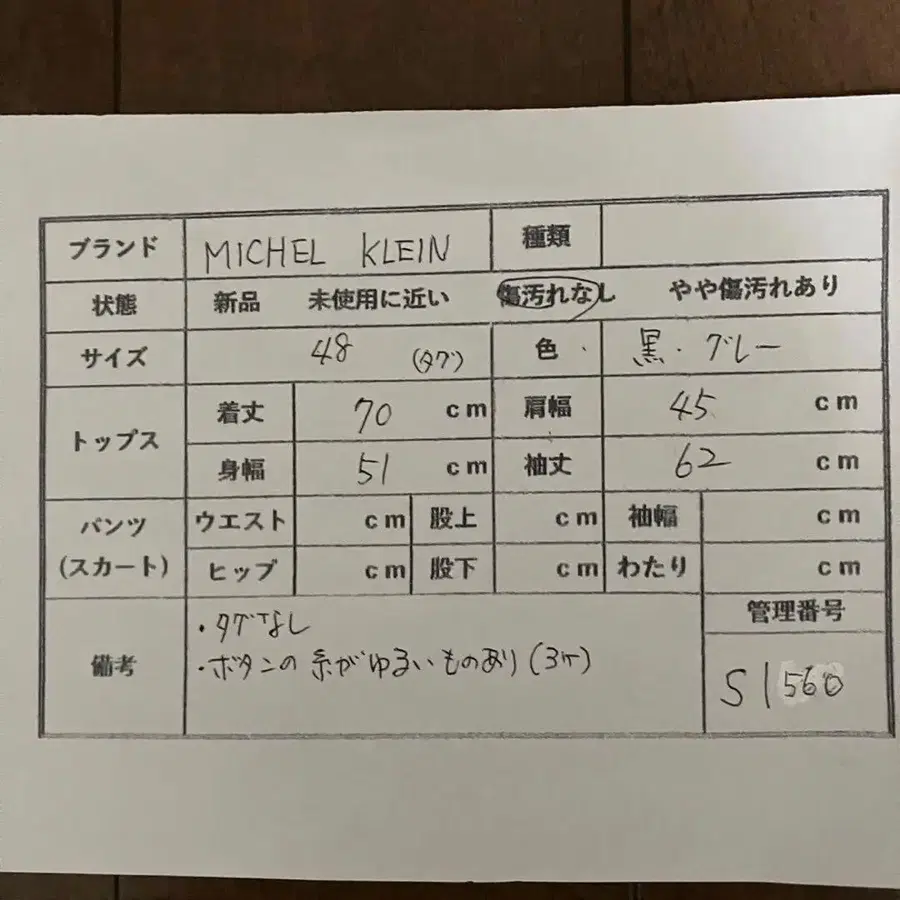 ブランド MICHEL KLEIN 種類
状態 新品 未使用に近い 傷汚れなし やや傷汚れあり
サイズ 48 (タグ) 色 黒・グレー
トップス 着丈 70 cm 肩幅 45 cm
身幅 51 cm 袖丈 62 cm
パンツ ウエスト cm 股上 cm 袖幅 cm
(スカート) ヒップ cm 股下 cm わたり cm
備考 ・タグなし 管理番号
・ボタンの糸がゆるいものあり(3ケ) S1560